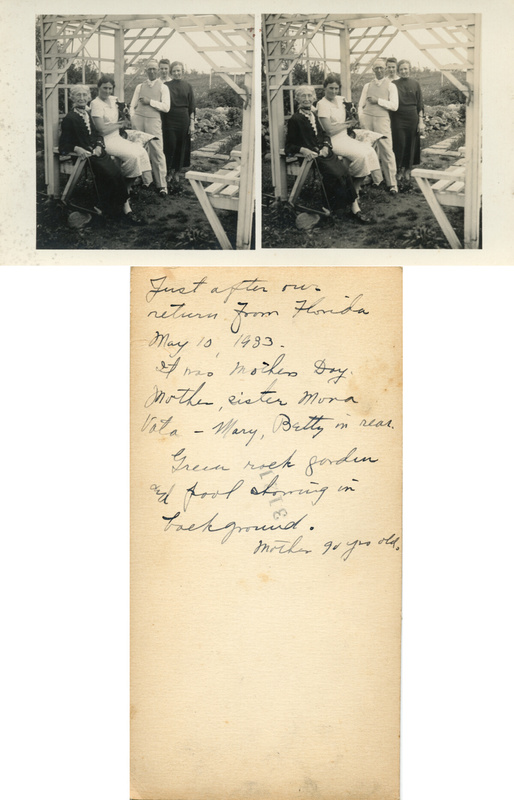 Just after our
return from Florida
May 10, 1933.
It was Mothers Day.
Mother, sister Mona
Vota - Mary, Betty in rear.
Green rock garden
and pool showing in
background.
Mother 90 yrs old.